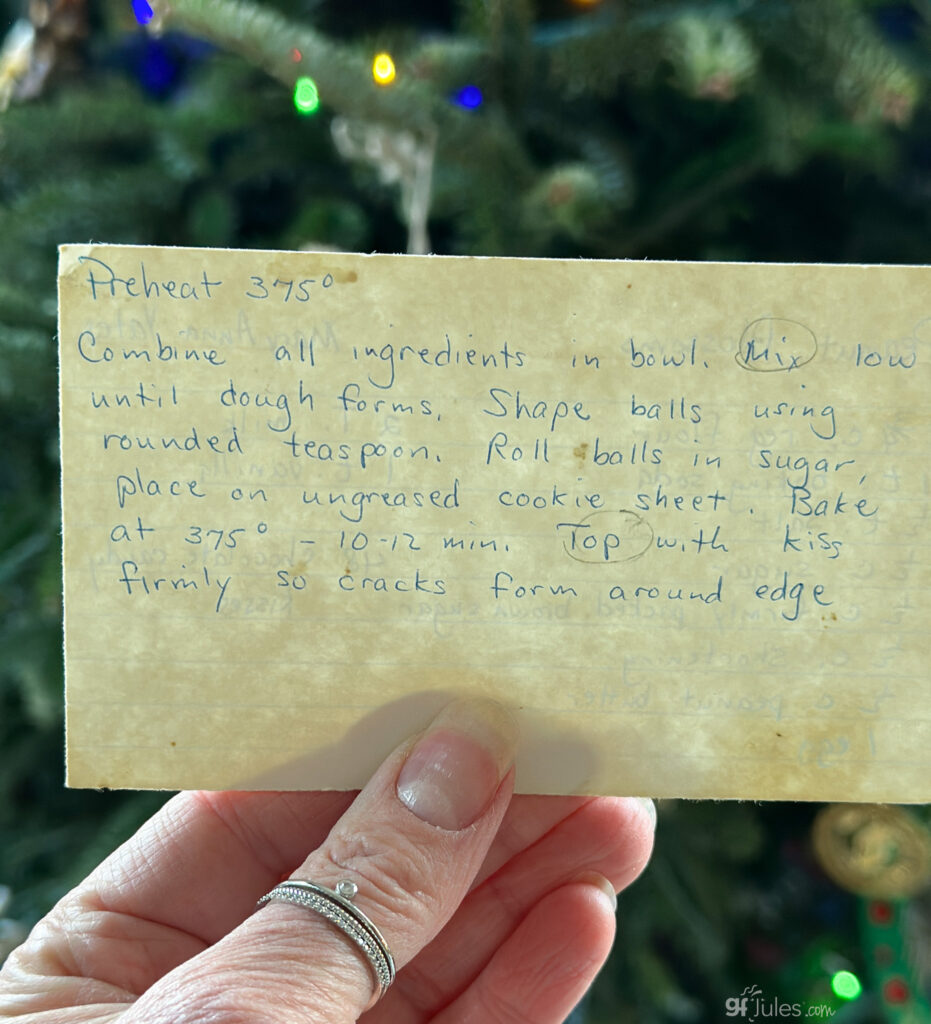 Preheat 375°
Combine all ingredients in bowl. Mix low
until dough forms. Shape balls using
rounded teaspoon. Roll balls in sugar,
place on ungreased cookie sheet. Bake
at 375° - 10-12 min. Top with kiss
firmly so cracks form around edge
gfJules.com